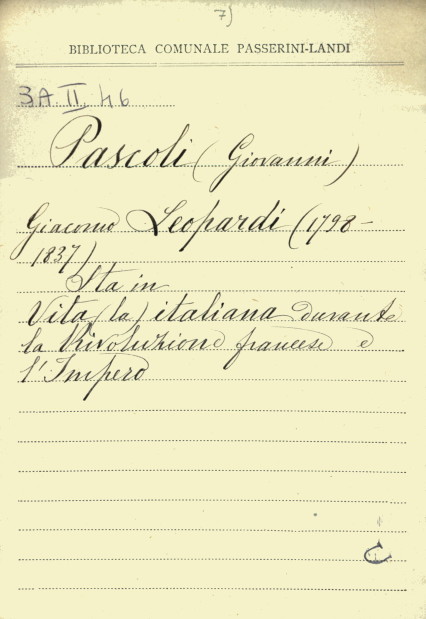 7)
BIBLIOTECA COMUNALE PASSERINI-LANDI
3A II. 46
Pascoli (Giovanni)
Giacomo Leopardi (1798-
1837)
Sta in
Vita (la) italiana durante
la Rivoluzione francese e
l'Impero
C